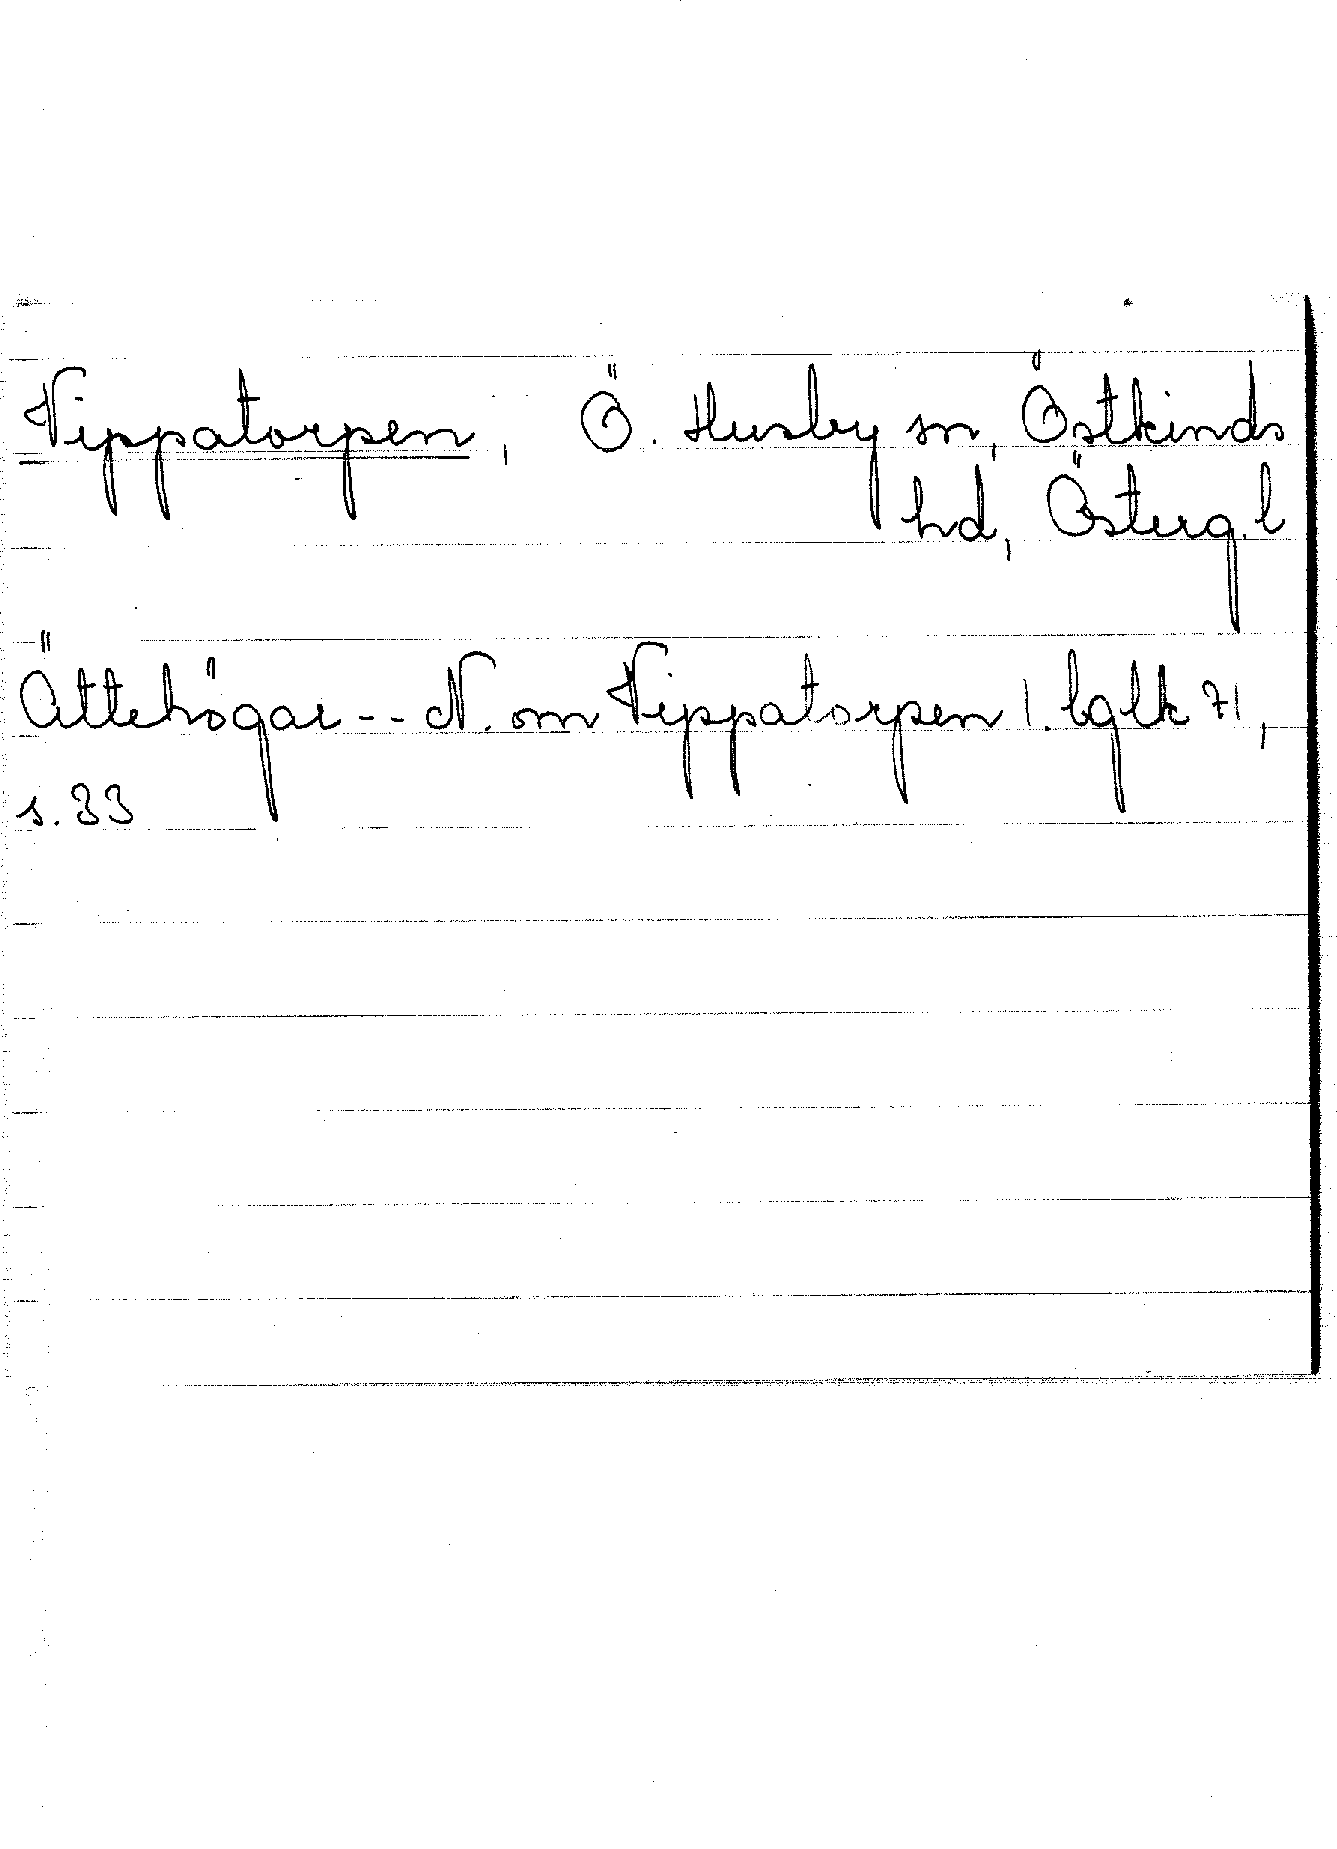 Vippatorpen, Ö. Husby sn, Östkinds
hd, Österg. l
Ättehögar -- N. om Vippatorpen l. bglk 71,
s. 33